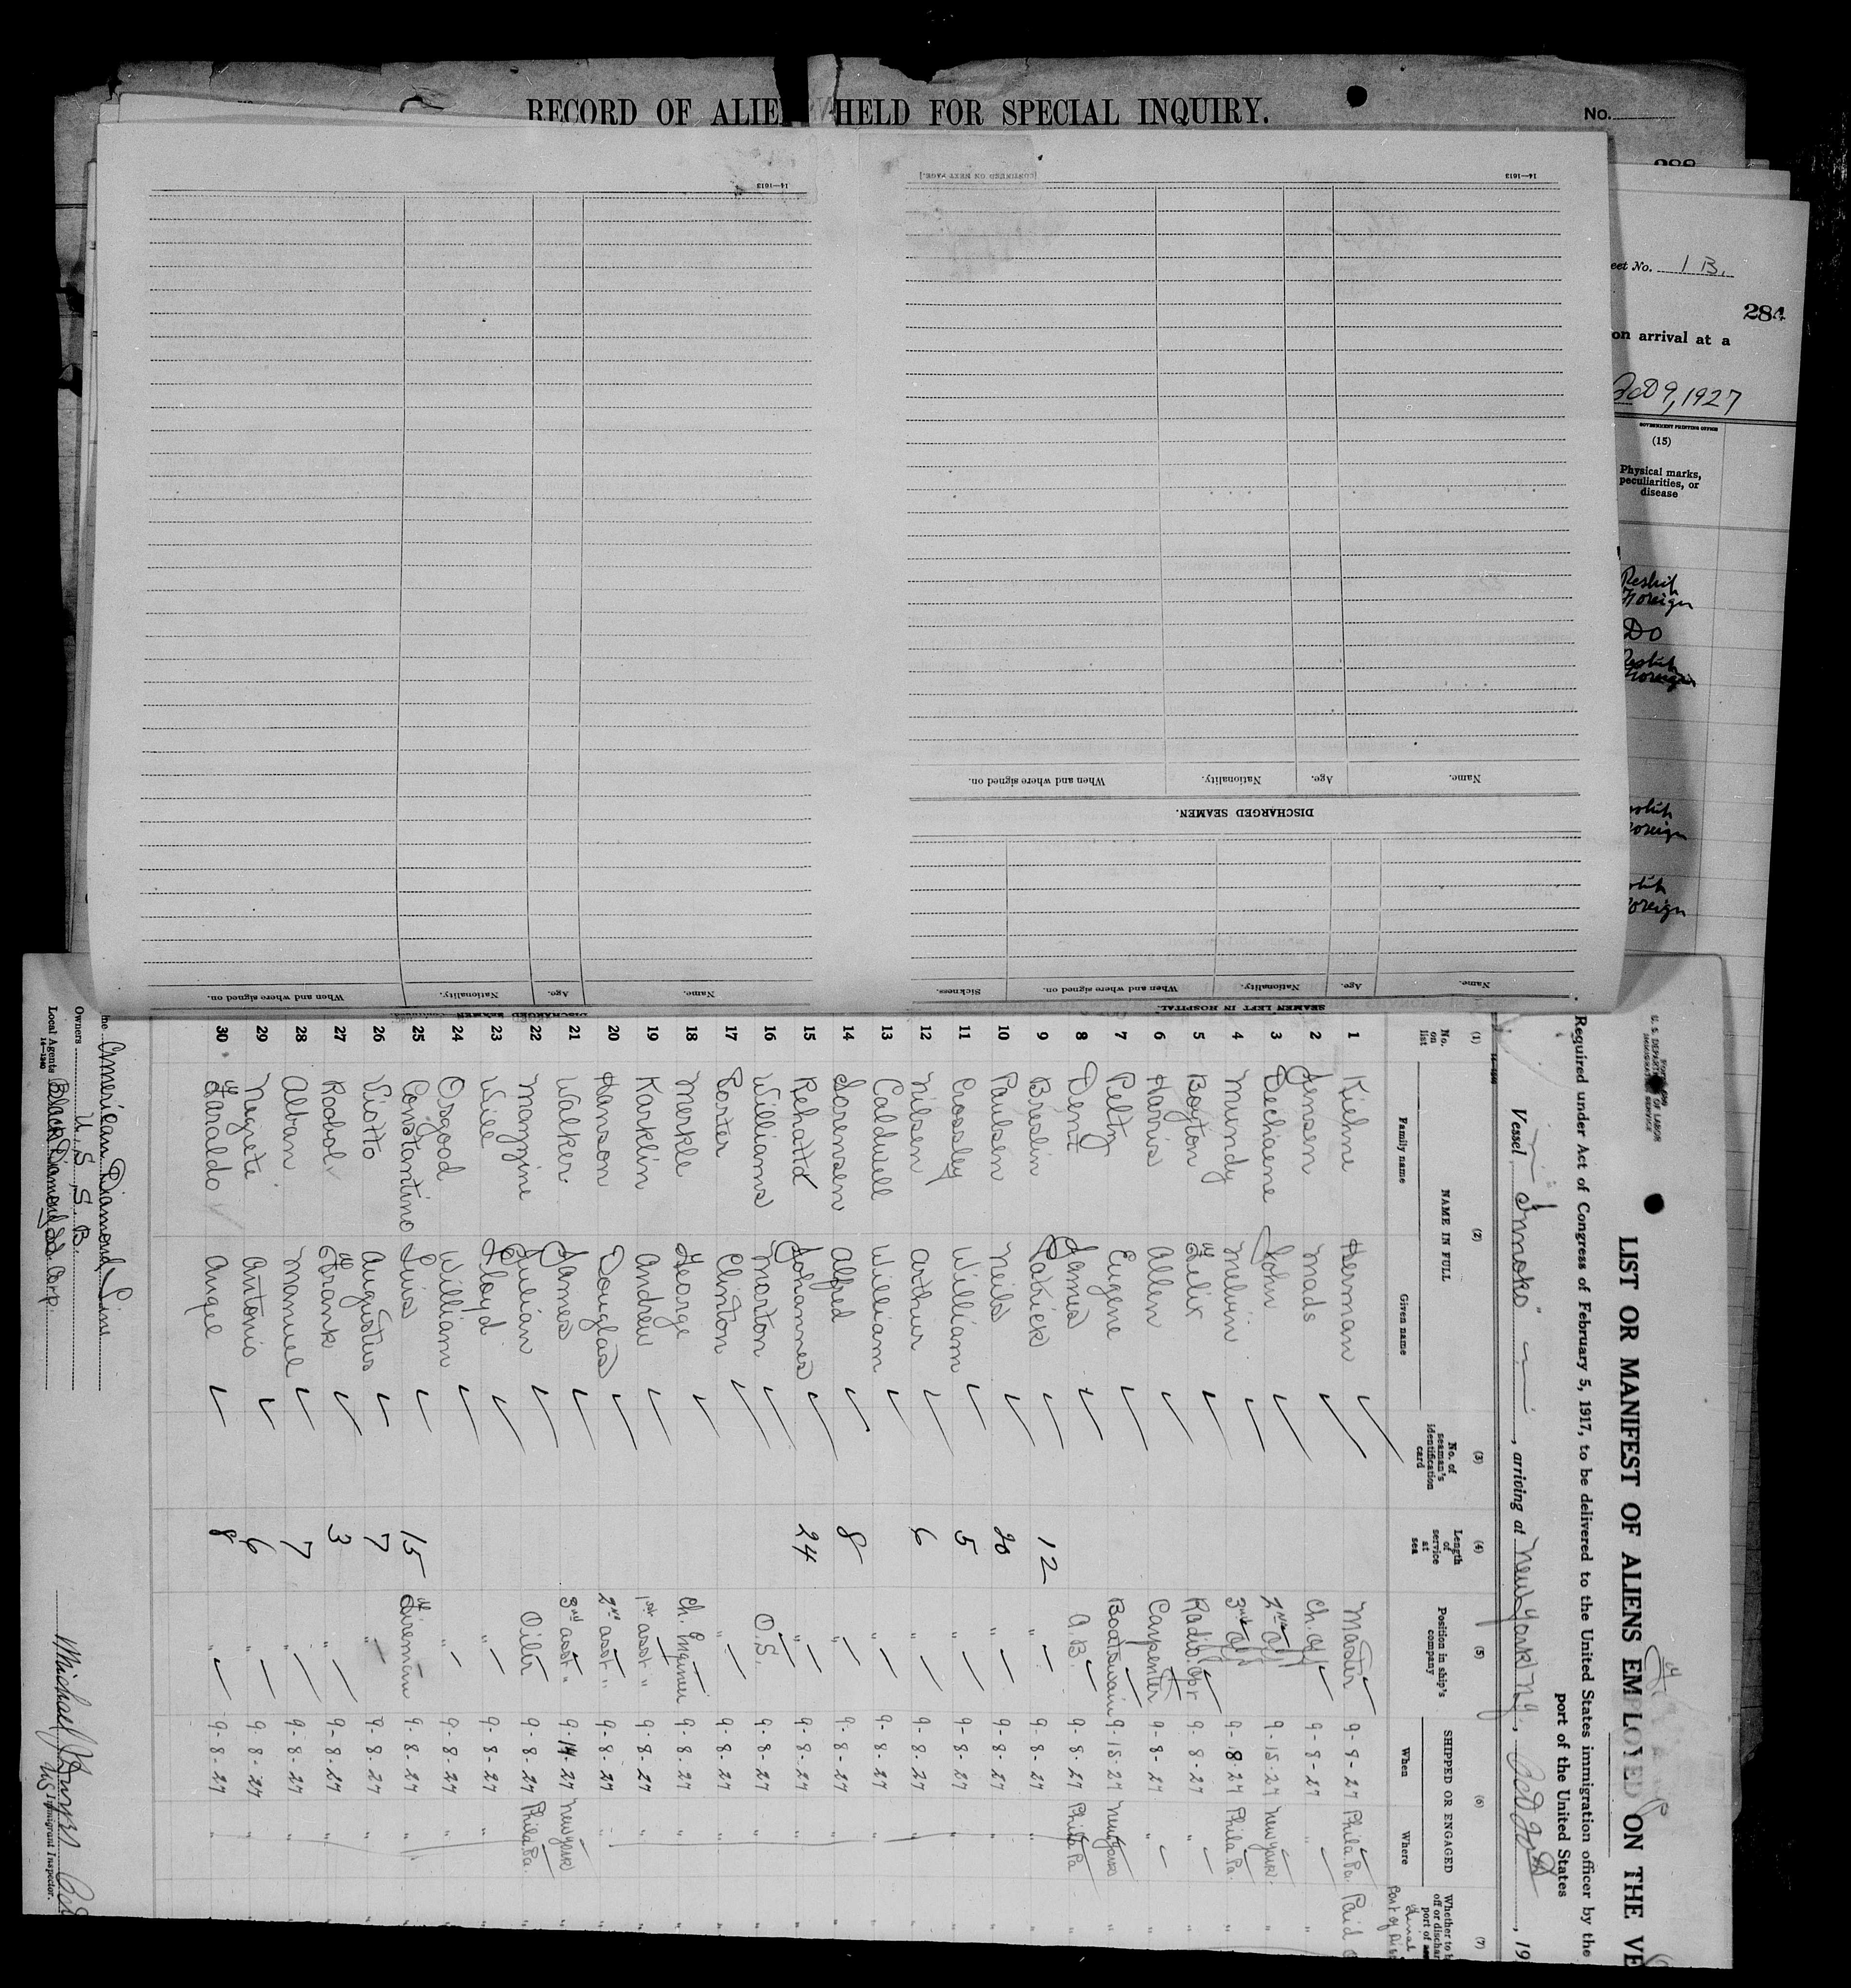 RECORD OF ALIE HELD FOR SPECIAL INQUIRY.
No.
14—1613
[CONTINUED ON NEXT PAGE.]
14—1613
Name. Age. Nationality. When and where signed on.
DISCHARGED SEAMEN.
Name. Age. Nationality. When and where signed on. Sickness.
SEAMEN LEFT IN HOSPITAL.
Name. Age. Nationality. When and where signed on.
eet No. 1 B.
284
on arrival at a
Oct 9, 1927
GOVERNMENT PRINTING OFFICE
(15)
Physical marks, peculiarities, or disease
Foreign
Do
Foreign
oreign
oreign
U. S. DEPARTMENT OF LABOR
IMMIGRATION SERVICE
LIST OR MANIFEST OF ALIENS EMPLOYED ON THE VE
Required under Act of Congress of February 5, 1917, to be delivered to the United States immigration officer by the
port of the United States
Vessel "Innoko", arriving at New York N.Y., 19
(1) (2) (3) (4) (5) (6) (7)
No. on list NAME IN FULL No. of seaman's identification card Length of service at sea Position in ship's company SHIPPED OR ENGAGED
Family name Given name When Where
1 Kiehne Herman Master 9-8-27 Phila. Pa. Paid
2 Jensen Mads Ch. Off 9-8-27 "
3 Dechaene John 2nd Off 9-15-27 New York
4 Mundy Melvin 3rd Off 9-8-27 Phila Pa.
5 Boyton Felix Radio Opr 9-8-27 "
6 Harris Allen Carpenter 9-8-27 "
7 Pelty Eugene Boatswain 9-15-27 New York
8 Dent James A.B. 9-8-27 Phila Pa
9 Breslin Patrick 12 " 9-8-27 "
10 Paulsen Neils 20 " 9-8-27 "
11 Crossley William 5 " 9-8-27 "
12 Nilsen Arthur 6 " 9-8-27 "
13 Caldwell William " 9-8-27 "
14 Sorensen Alfred 8 " 9-8-27 "
15 Rehattd Johannes 24 " 9-8-27 "
16 Williams Morton O.S. 9-8-27 "
17 Porter Clinton " 9-8-27 "
18 Merkle George Ch. Engineer 9-8-27 "
19 Karklin Andrew 1st asst " 9-8-27 "
20 Hanson Douglas 2nd asst " 9-8-27 "
21 Walker James 3rd asst " 9-14-27 New York
22 Mazzine Julian Oiler 9-8-27 Phila. Pa.
23 Will Lloyd " 9-8-27 "
24 Osgood William " 9-8-27 "
25 Constantino Luis 15 Firemen 9-8-27 "
26 Viotto Augustus 7 " 9-8-27 "
27 Rodol Frank 3 " 9-8-27 "
28 Alban Manuel 7 " 9-8-27 "
29 Negrete Antonio 6 " 9-8-27 "
30 Faraldo Angel 8 " 9-8-27 "
ne American Diamond Line
Owners U. S. S. B.
Local Agents Black Diamond SS. Corp.
14—1240
Michael
Immigrant Inspector.